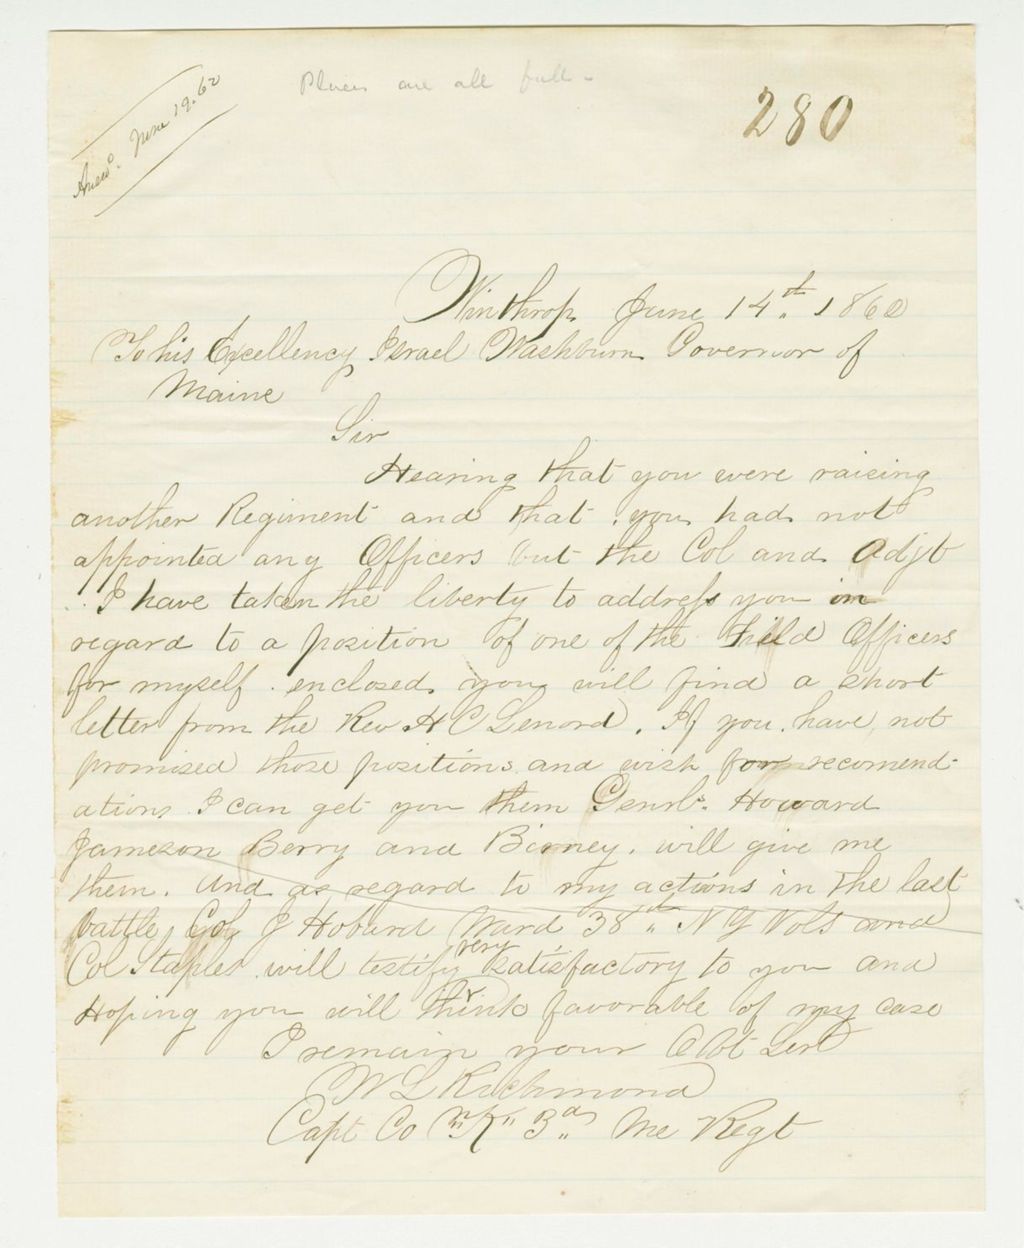 Places are all full.
Answd. June 19. 62
280
Winthrop June 14th. 1862
To his Excellency Israel Washburn Governor of
Maine
Sir
Hearing that you were raising
another Regiment and that you had not
appointed any Officers but the Col and Adjt
I have taken the liberty to address you in
regard to a position of one of the Field Officers
for myself. enclosed you will find a short
letter from the Rev H C Lenord. If you have not
promised those positions and wish for recomend-
ations I can get you them Genrls. Howard
Jameson Berry and Birney. will give me
them. And as regard to my actions in the last
battle, Col J Hobard Ward 38th. N Y Vols and
Col Staples will testify very satisfactory to you and
Hoping you will think favorable of my case
I remain your Obt Servt
W L Richmond
Capt Co "K" 3d Me Regt